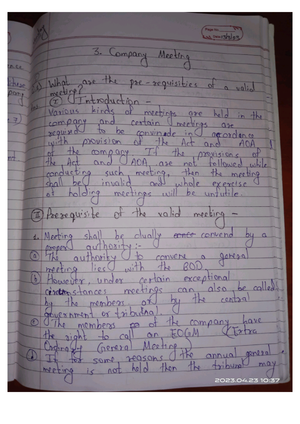 3. Company Meeting
What are the pre-requisities of a valid
meeting?
(I) Introduction -
Various kinds of meetings are held in the
company and certain meetings are
required to be convened in accordance
with provision of the Act and AOA
of the company. If the provisions of
the Act and AOA are not followed while
conducting such meeting, then the meeting
shall be invalid and whole exercise
of holding meetings will be
(II) Prerequisite of the valid meeting -
Meeting shall be convened by a
proper authority :-
(a) The authority to convene a general
meeting lies with the BOD.
(b) However, under certain exceptional
circumstances meetings can also be called
by the members or by the central
government or tribunal.
(c) The members of the company have
the right to call an EOGM (Extra
Ordinary General Meeting
(d) If for some reasons the annual general
meeting is not held then the tribunal may
2023.04.23 10:37